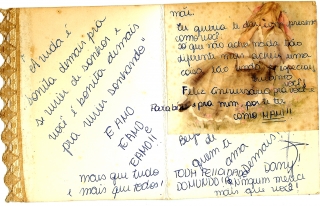 "A vida é
bonita demais pra
se viver de sonhos e
você é bonita demais
pra viver sonhando"
TE AMO
TE AMO
TE AMO!!!
mais que tudo
e mais que todos!
mãe:
Eu queria te dar um presente
como você
só que não achei nada tão
diferente mais achei uma
coisa tão
Feliz Aniversário pra você
Parabéns pra mim por te ter
como MÃE!!!
Beijos de
quem te
ama
Demais!
TODA FELICIDADE
DO MUNDO!
ninguem merece
mais que você!